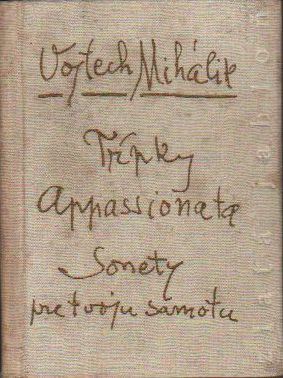 Vojtech Mihálik
Tŕpky
Appassionata
Sonety
pre tvoju samotu